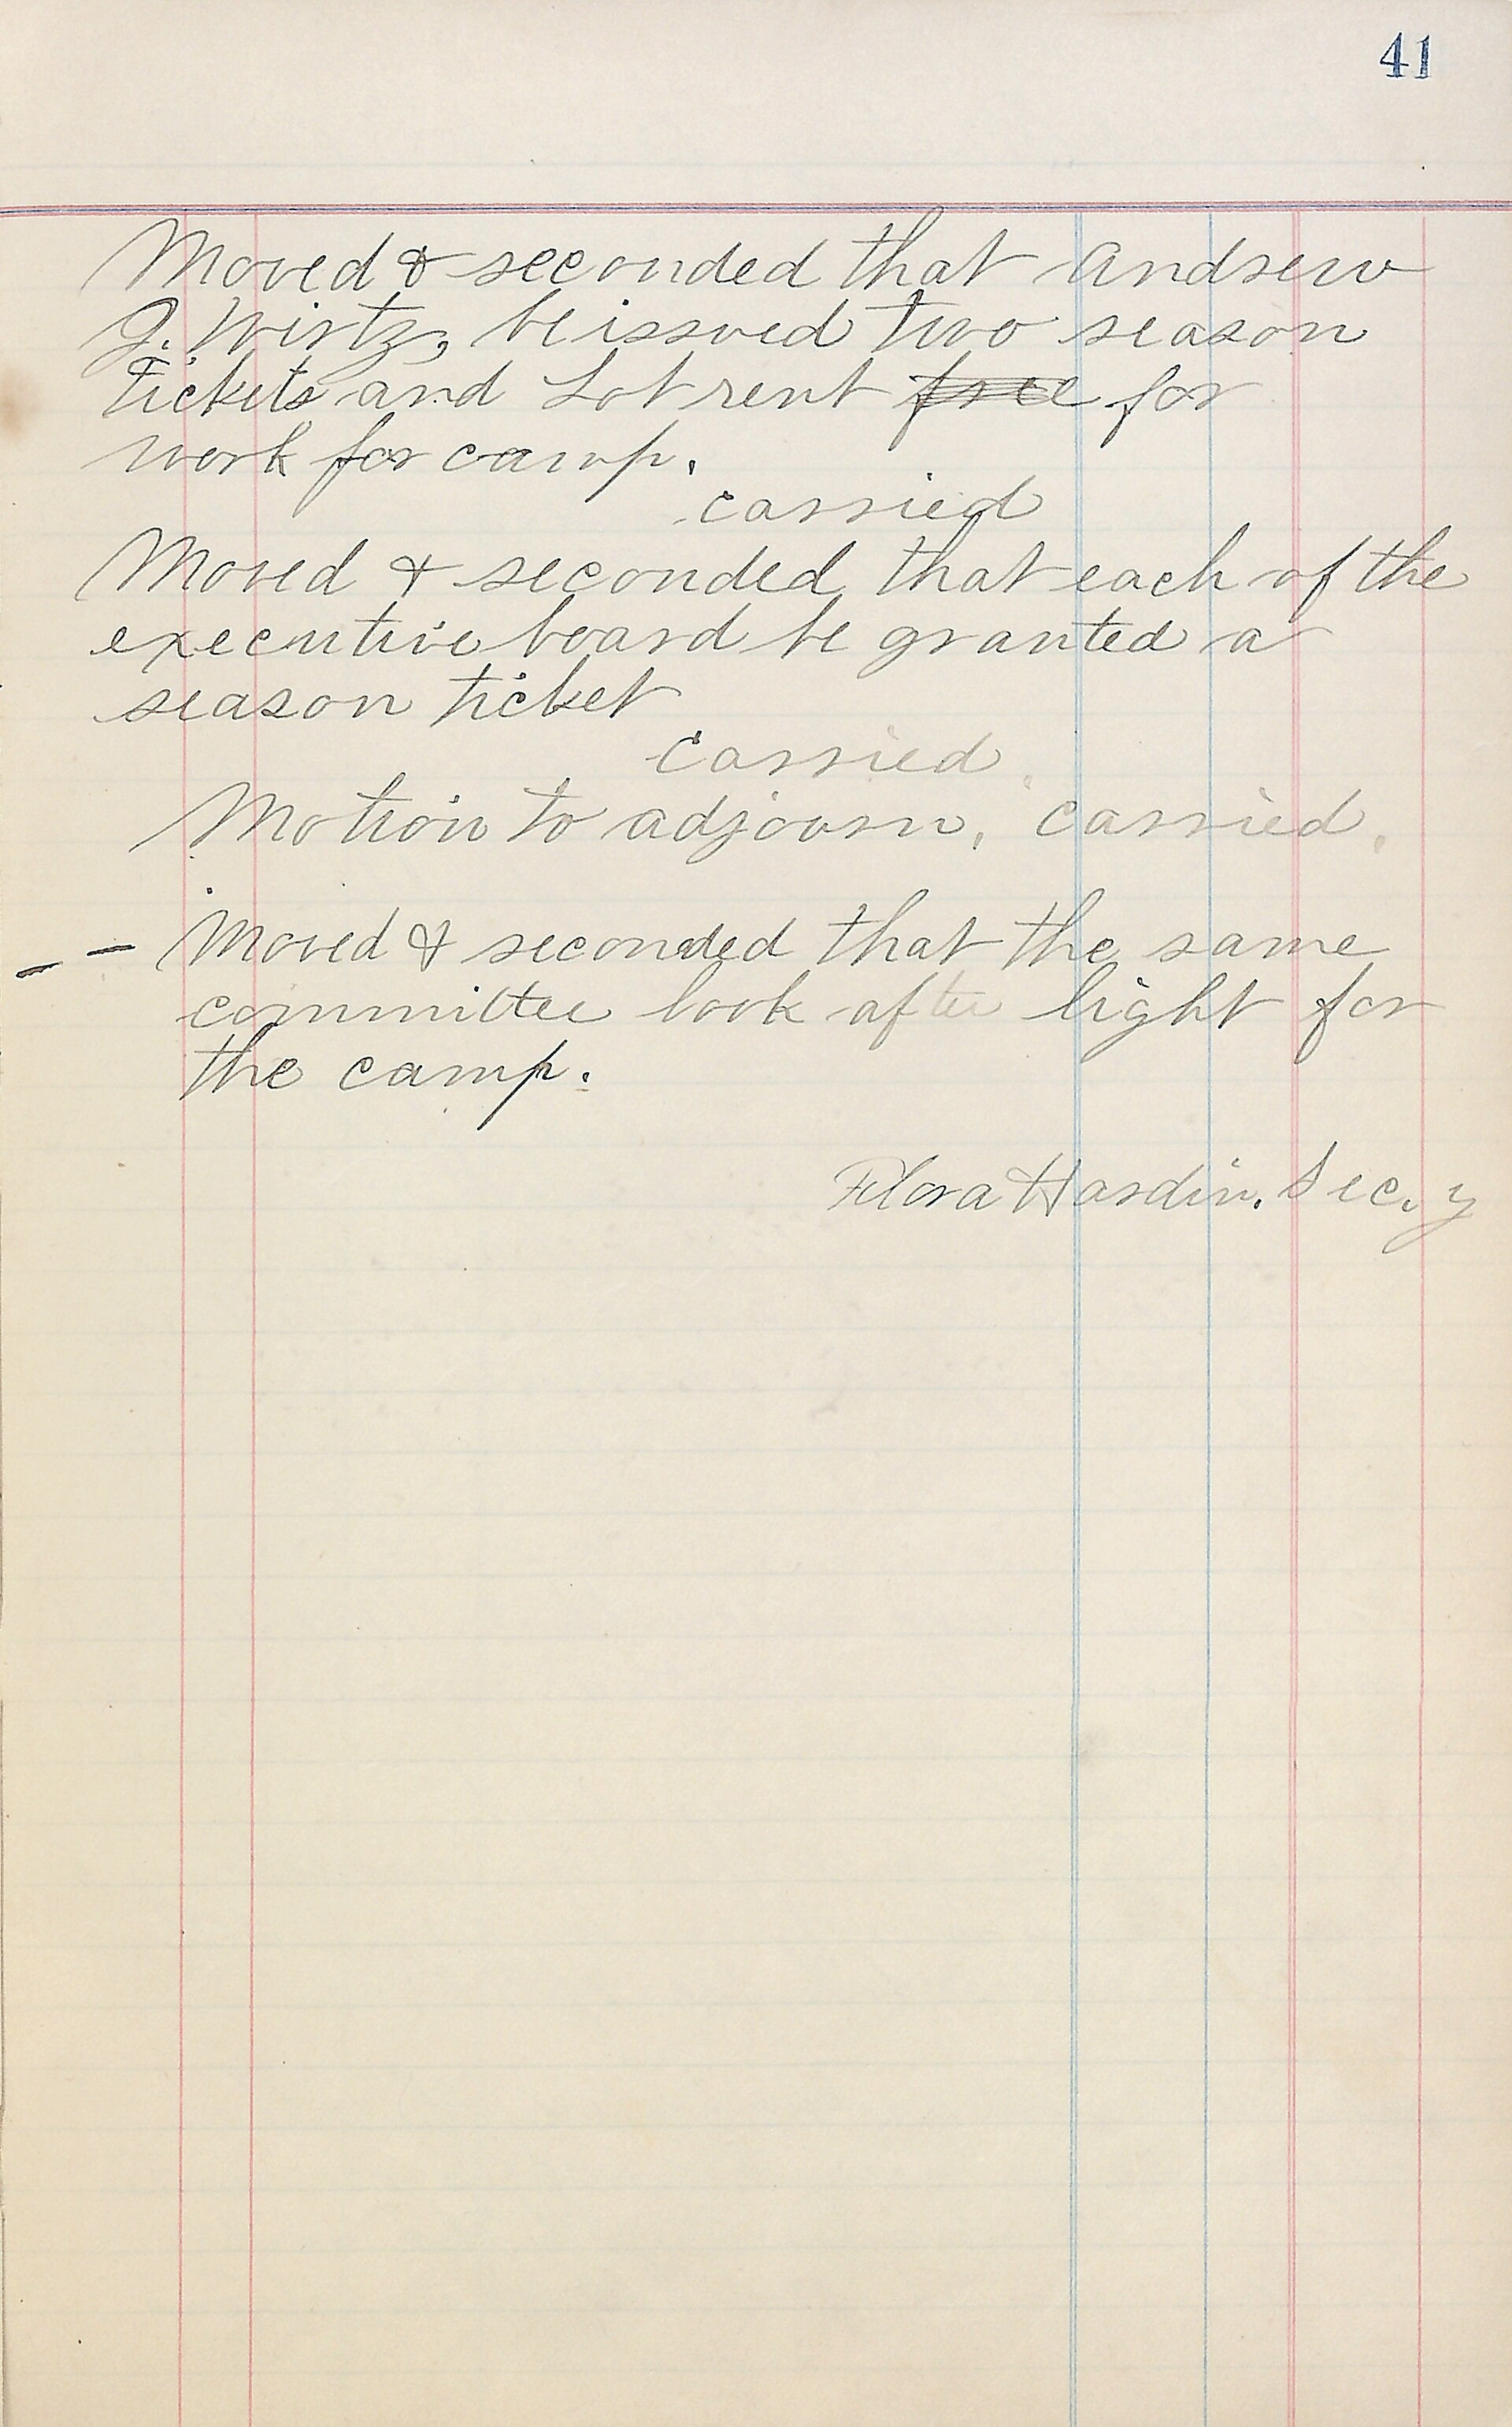 41
Moved & seconded that Andrew
J. Wirtz, be issued two season
tickets and Lot rent free for
work for camp.
carried
Moved & seconded that each of the
executive board be granted a
season ticket
Carried.
Motion to adjourn, carried.
-- Moved & seconded that the same
committee look after light for
the camp.
Flora Hardin. Sec.y